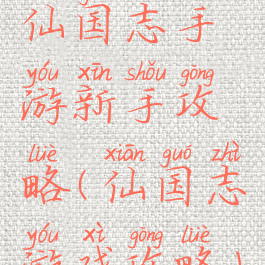 仙国志手
yóu xīn shǒu gōng
游新手攻
lüè xiān guó zhì
略(仙国志
yóu xì gōng lüè
游戏攻略)